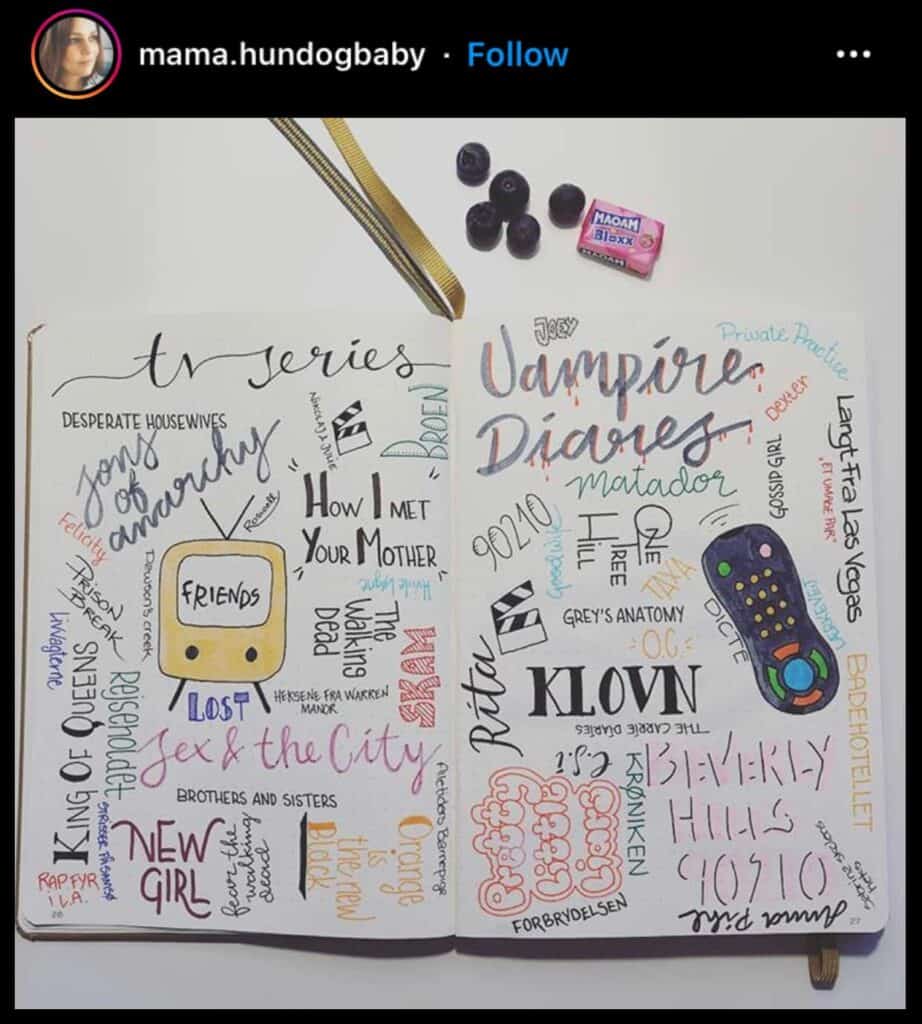 mama.hundogbaby · Follow
MAOAM
Bloxx
MAOAM
tv series
DESPERATE HOUSEWIVES
NIKOLAJ & JULIE
BROEN
Sons
of
anarchy
Roswell
"HOW I MET
YOUR MOTHER"
Felicity
PRISON
BREAK
Dawson's creek
FRIENDS
Hvide løgne
The
Walking
Dead
SKAM
Livvagterne
KING OF QUEENS
Rejseholdet
LOST
HEKSENE FRA WARREN
MANOR
Sex & the City
BROTHERS AND SISTERS
STRISSER PÅ SAMSØ
RAP FYR
I L.A.
NEW
GIRL
fear the
walking
dead
Orange
is
the new
Black
Alletiders Barnepige
26
JOEY
Vampire
Diaries
Private Practice
Dexter
Langt Fra Las Vegas
"ET UMAGE PAR"
GOSSIP GIRL
Matador
90210
ONE
TREE
HILL
TAXA
GREY'S ANATOMY
O.C.
DICTE
Rita
KLOVN
THE CARRIE DIARIES
C.S.I
KRØNIKEN
BADEHOTELLET
BEVERLY
HILLS
90210
Pretty
Little
Liars
FORBRYDELSEN
Anna Pihl
27